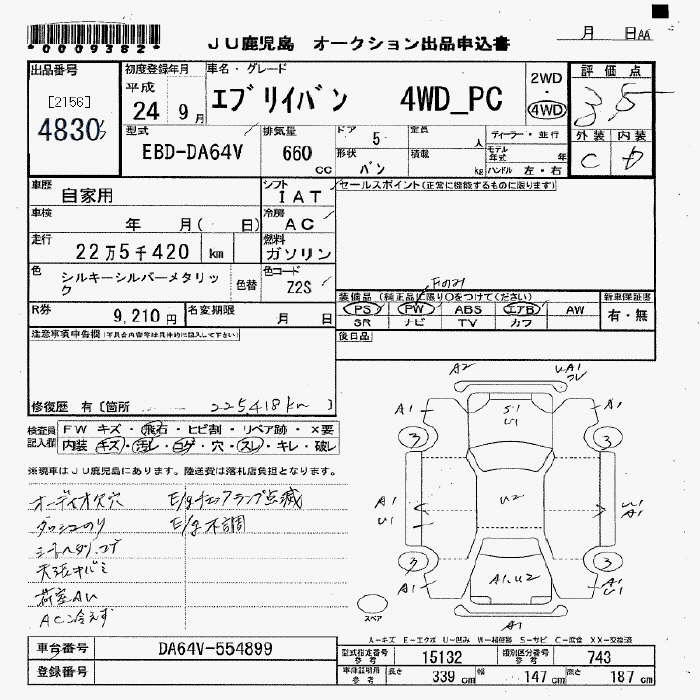 *0009382*
JU鹿児島 オークション出品申込書
月 日 AA
出品番号
[2156]
4830
初度登録年月
平成
24 9月
車名・グレード
エブリイバン 4WD_PC
2WD
・
4WD
評価点
3.5
外装 内装
C D
型式
EBD-DA64V
排気量
660 cc
ドア 5
形状 バン
定員 人
積載 kg
ディーラー・並行
モデル年式 年
ハンドル 左・右
車歴
自家用
シフト
IAT
セールスポイント(正常に機能するものに限ります)
車検
年 月( 日)
冷房
AC
走行
22万5千420 km
燃料
ガソリン
色
シルキーシルバーメタリック
色替
色コード
Z2S
Fのみ
装備品(純正品に限り○をつけてください)
PS PW ABS エアB AW
SR ナビ TV カワ
新車保証書
有・無
R券
9,210円
名変期限
月 日
後日品
注意事項申告欄(不具合内容等は具体的に記入して下さい)
修復歴 有〔箇所 225,418km 〕
検査員記入欄
FW キズ・飛石・ヒビ割・リペア跡・×要
内装 キズ・汚レ・コゲ・穴・スレ・キレ・破レ
※現車はJU鹿児島にあります。陸送費は落札店負担となります。
オーディオ欠穴 E/gチェックランプ点滅
ダッシュのり E/g不調
シートヘタリ、コゲ
天張キバミ
荷室AU
AC冷えず
A2 UA1
A1 S1 U1 A1
3 3
A1 U1 U2 U1 A1
3 3
A1 A1,U2 A1
A1
スペア
A-キズ E-エクボ U-凹み W-補修跡 S-サビ C-腐食 XX-交換済
車台番号 DA64V-554899
登録番号
型式指定番号 参考 15132
類別区分番号 参考 743
車庫証明用 参考 長さ 339cm 幅 147cm 高さ 187cm